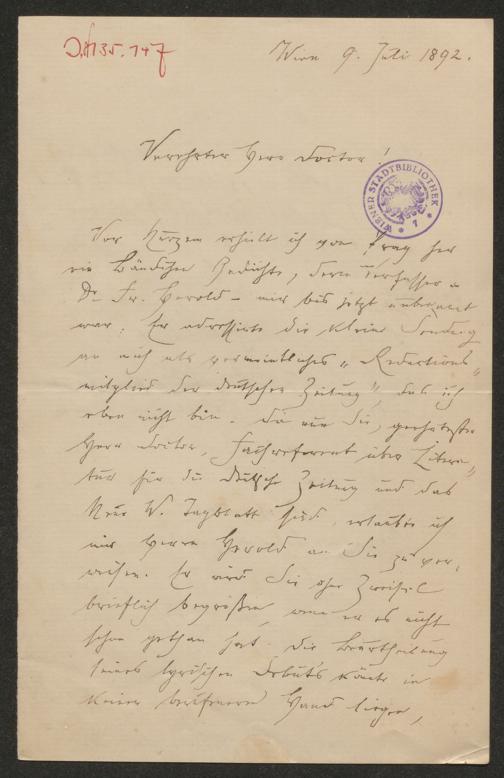 J.N. 135.747
Wien 9. Juli 1892.
Verehrter Herr Doctor!
WIENER STADTBIBLIOTHEK
Vor Kurzem erhielt ich von Prag her
ein Bändchen Gedichte, deren Verfasser –
Dr. Fr. Herold – mir bis jetzt unbekannt
war. Er adressirte die kleine Sendung
an mich als vermeintliches „Redactions
mitglied der deutschen Zeitung", das ich
eben nicht bin. Da nun Sie, geschätzter
Herr Doctor, Fachreferent über Litera-
tur für die deutsche Zeitung und das
Neue W. Tagblatt sind, erlaubte ich
mir Herrn Herold an Sie zu ver-
weisen. Er wird Sie ohne Zweifel
brieflich begrüßen, wenn er es nicht
schon gethan hat. Die Beurtheilung
seines lyrischen Debuts könnte in
keiner berufenern Hand liegen,